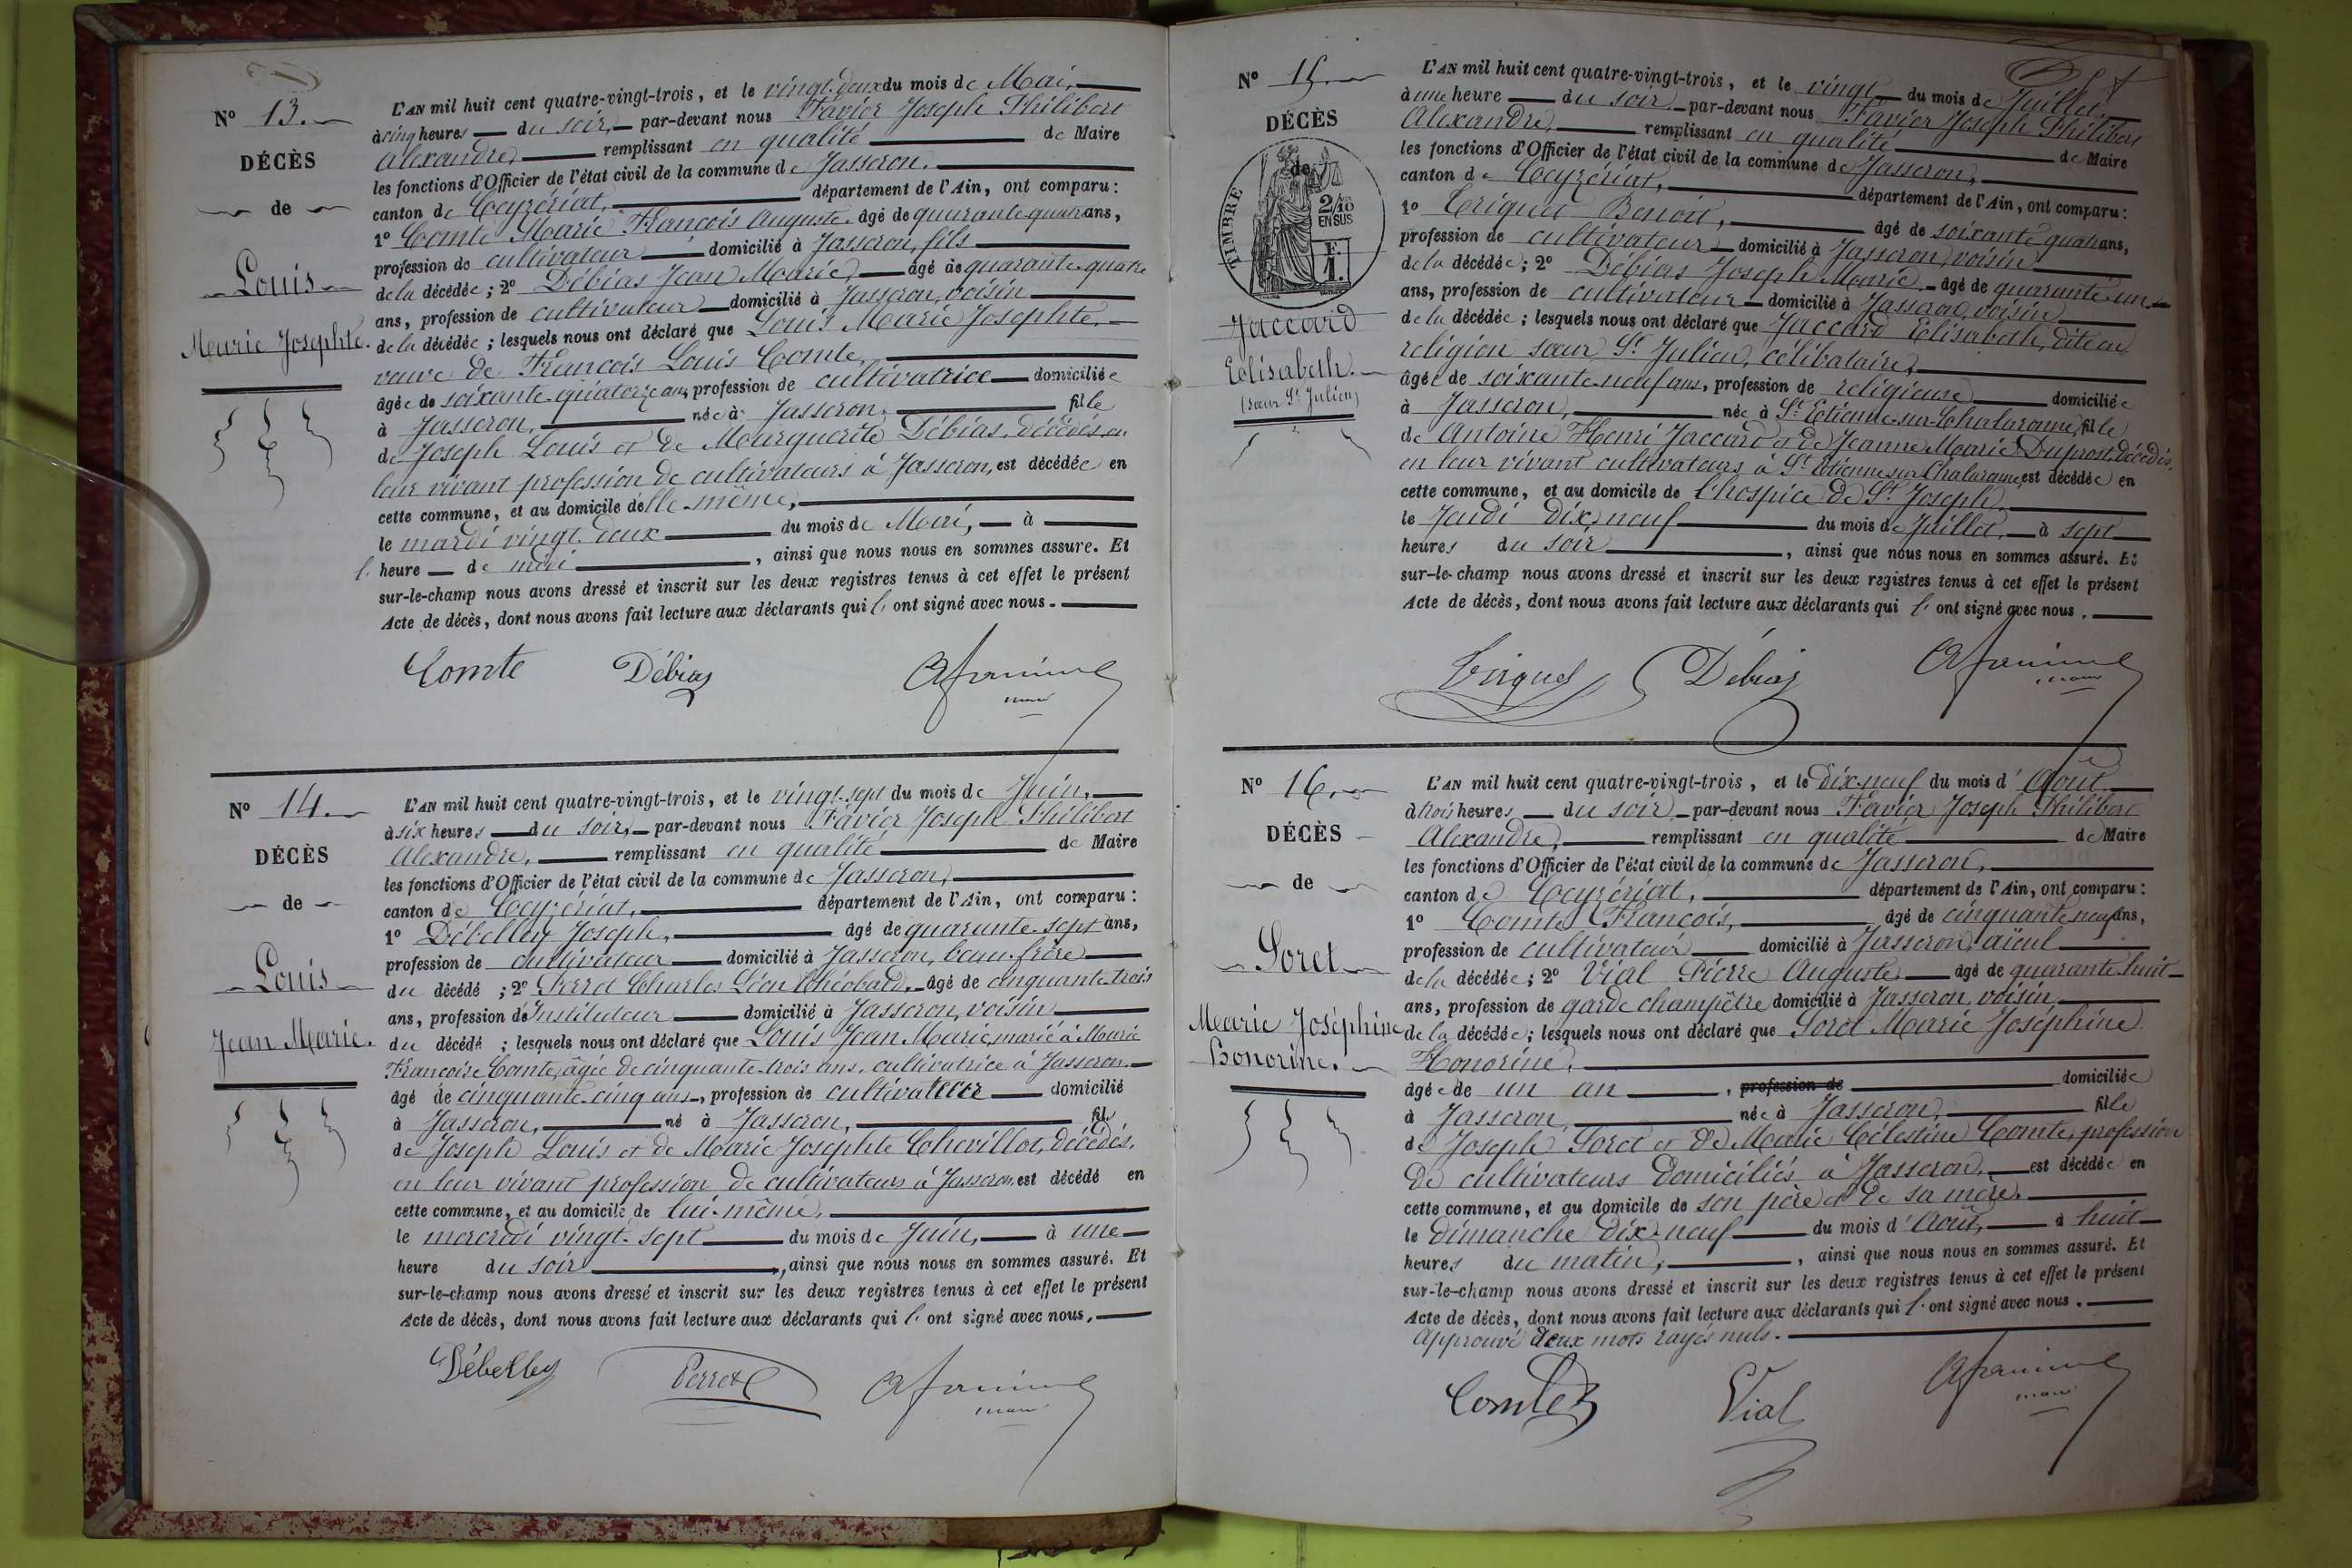 N° 13.
DÉCÈS
de
Louis
Marie Josephte.
L'AN mil huit cent quatre-vingt-trois, et le vingt-deux du mois de Mai,
à cinq heures du soir, par-devant nous Favier Joseph Philibert
Alexandre, remplissant en qualité de Maire
les fonctions d'Officier de l'état civil de la commune de Jasseron,
canton de Ceyzériat, département de l'Ain, ont comparu :
1° Comte Marie François Auguste, âgé de quarante quatre ans,
profession de cultivateur domicilié à Jasseron, fils
de la décédée ; 2° Débias Jean Marie, âgé de quarante-quatre
ans, profession de cultivateur domicilié à Jasseron, voisin
de la décédée ; lesquels nous ont déclaré que Louis Marie Josephte,
veuve de François Louis Comte,
âgée de soixante-quatorze ans, profession de cultivatrice domiciliée
à Jasseron, née à Jasseron, fille
de Joseph Louis et de Marguerite Débias, décédés, en
leur vivant profession de cultivateurs à Jasseron, est décédée en
cette commune, et au domicile d'elle-même,
le mardi vingt-deux du mois de Mai, à
l' heure de midi, ainsi que nous nous en sommes assuré. Et
sur-le-champ nous avons dressé et inscrit sur les deux registres tenus à cet effet le présent
Acte de décès, dont nous avons fait lecture aux déclarants qui l' ont signé avec nous.
Comte Débias
N° 14.
DÉCÈS
de
Louis
Jean Marie.
L'AN mil huit cent quatre-vingt-trois, et le vingt-sept du mois de Juin,
à six heures du soir, par-devant nous Favier Joseph Philibert
Alexandre, remplissant en qualité de Maire
les fonctions d'Officier de l'état civil de la commune de Jasseron,
canton de Ceyzériat, département de l'Ain, ont comparu :
1° Débelley Joseph, âgé de quarante-sept ans,
profession de cultivateur domicilié à Jasseron, beau-frère
du décédé ; 2° Perret Charles Léon Théobard, âgé de cinquante-trois
ans, profession d'Instituteur domicilié à Jasseron, voisin
du décédé ; lesquels nous ont déclaré que Louis Jean Marie, marié à Marie
Françoise Comte, âgée de cinquante-trois ans, cultivatrice à Jasseron,
âgé de cinquante-cinq ans, profession de cultivateur domicilié
à Jasseron, né à Jasseron, fils
de Joseph Louis et de Marie Josephte Chevillot, décédés,
en leur vivant profession de cultivateurs à Jasseron, est décédé en
cette commune, et au domicile de lui-même,
le mercredi vingt-sept du mois de Juin, à une
heure du soir, ainsi que nous nous en sommes assuré. Et
sur-le-champ nous avons dressé et inscrit sur les deux registres tenus à cet effet le présent
Acte de décès, dont nous avons fait lecture aux déclarants qui l' ont signé avec nous,
Débelley Perret
N° 15.
DÉCÈS
de
TIMBRE
2/10
EN SUS
F.
1.
Jaccard
Elisabeth.
(sœur St Julien)
L'AN mil huit cent quatre-vingt-trois, et le vingt du mois de Juillet,
à une heure du soir, par-devant nous Favier Joseph Philibert
Alexandre, remplissant en qualité de Maire
les fonctions d'Officier de l'état civil de la commune de Jasseron,
canton de Ceyzériat, département de l'Ain, ont comparu :
1° Triquet Benoit, âgé de soixante quatre ans,
profession de cultivateur domicilié à Jasseron, voisin
de la décédée ; 2° Débias Joseph Marie, âgé de quarante-un
ans, profession de cultivateur domicilié à Jasseron, voisin
de la décédée ; lesquels nous ont déclaré que Jaccard Elisabeth, dite en
religion sœur St Julien, célibataire,
âgée de soixante-neuf ans, profession de religieuse domiciliée
à Jasseron, née à St Etienne-sur-Chalaronne, fille
de Antoine Henri Jaccard et de Jeanne Marie Duprost, décédés,
en leur vivant cultivateurs à St Etienne sur Chalaronne est décédée en
cette commune, et au domicile de l'hospice de St Joseph,
le Jeudi dix-neuf du mois de Juillet, à sept
heures du soir, ainsi que nous nous en sommes assuré. Et
sur-le-champ nous avons dressé et inscrit sur les deux registres tenus à cet effet le présent
Acte de décès, dont nous avons fait lecture aux déclarants qui l' ont signé avec nous.
Débias
N° 16.
DÉCÈS
de
Soret
Marie Joséphine
Honorine.
L'AN mil huit cent quatre-vingt-trois, et le dix-neuf du mois d'Août
à trois heures du soir, par-devant nous Favier Joseph Philibert
Alexandre, remplissant en qualité de Maire
les fonctions d'Officier de l'état civil de la commune de Jasseron,
canton de Ceyzériat, département de l'Ain, ont comparu :
1° Comte François, âgé de cinquante neuf ans,
profession de cultivateur domicilié à Jasseron, aïeul
de la décédée ; 2° Vial Pierre Auguste, âgé de quarante-huit
ans, profession de garde champêtre domicilié à Jasseron, voisin
de la décédée ; lesquels nous ont déclaré que Soret Marie Joséphine
Honorine,
âgée de un an, profession de domiciliée
à Jasseron, née à Jasseron, fille
de Joseph Soret et de Marie Célestine Comte, profession
de cultivateurs domiciliés à Jasseron, est décédée en
cette commune, et au domicile de son père et de sa mère,
le dimanche dix-neuf du mois d'Août, à huit
heures du matin, ainsi que nous nous en sommes assuré. Et
sur-le-champ nous avons dressé et inscrit sur les deux registres tenus à cet effet le présent
Acte de décès, dont nous avons fait lecture aux déclarants qui l' ont signé avec nous.
Approuvé deux mots rayés nuls.
Comte Vial